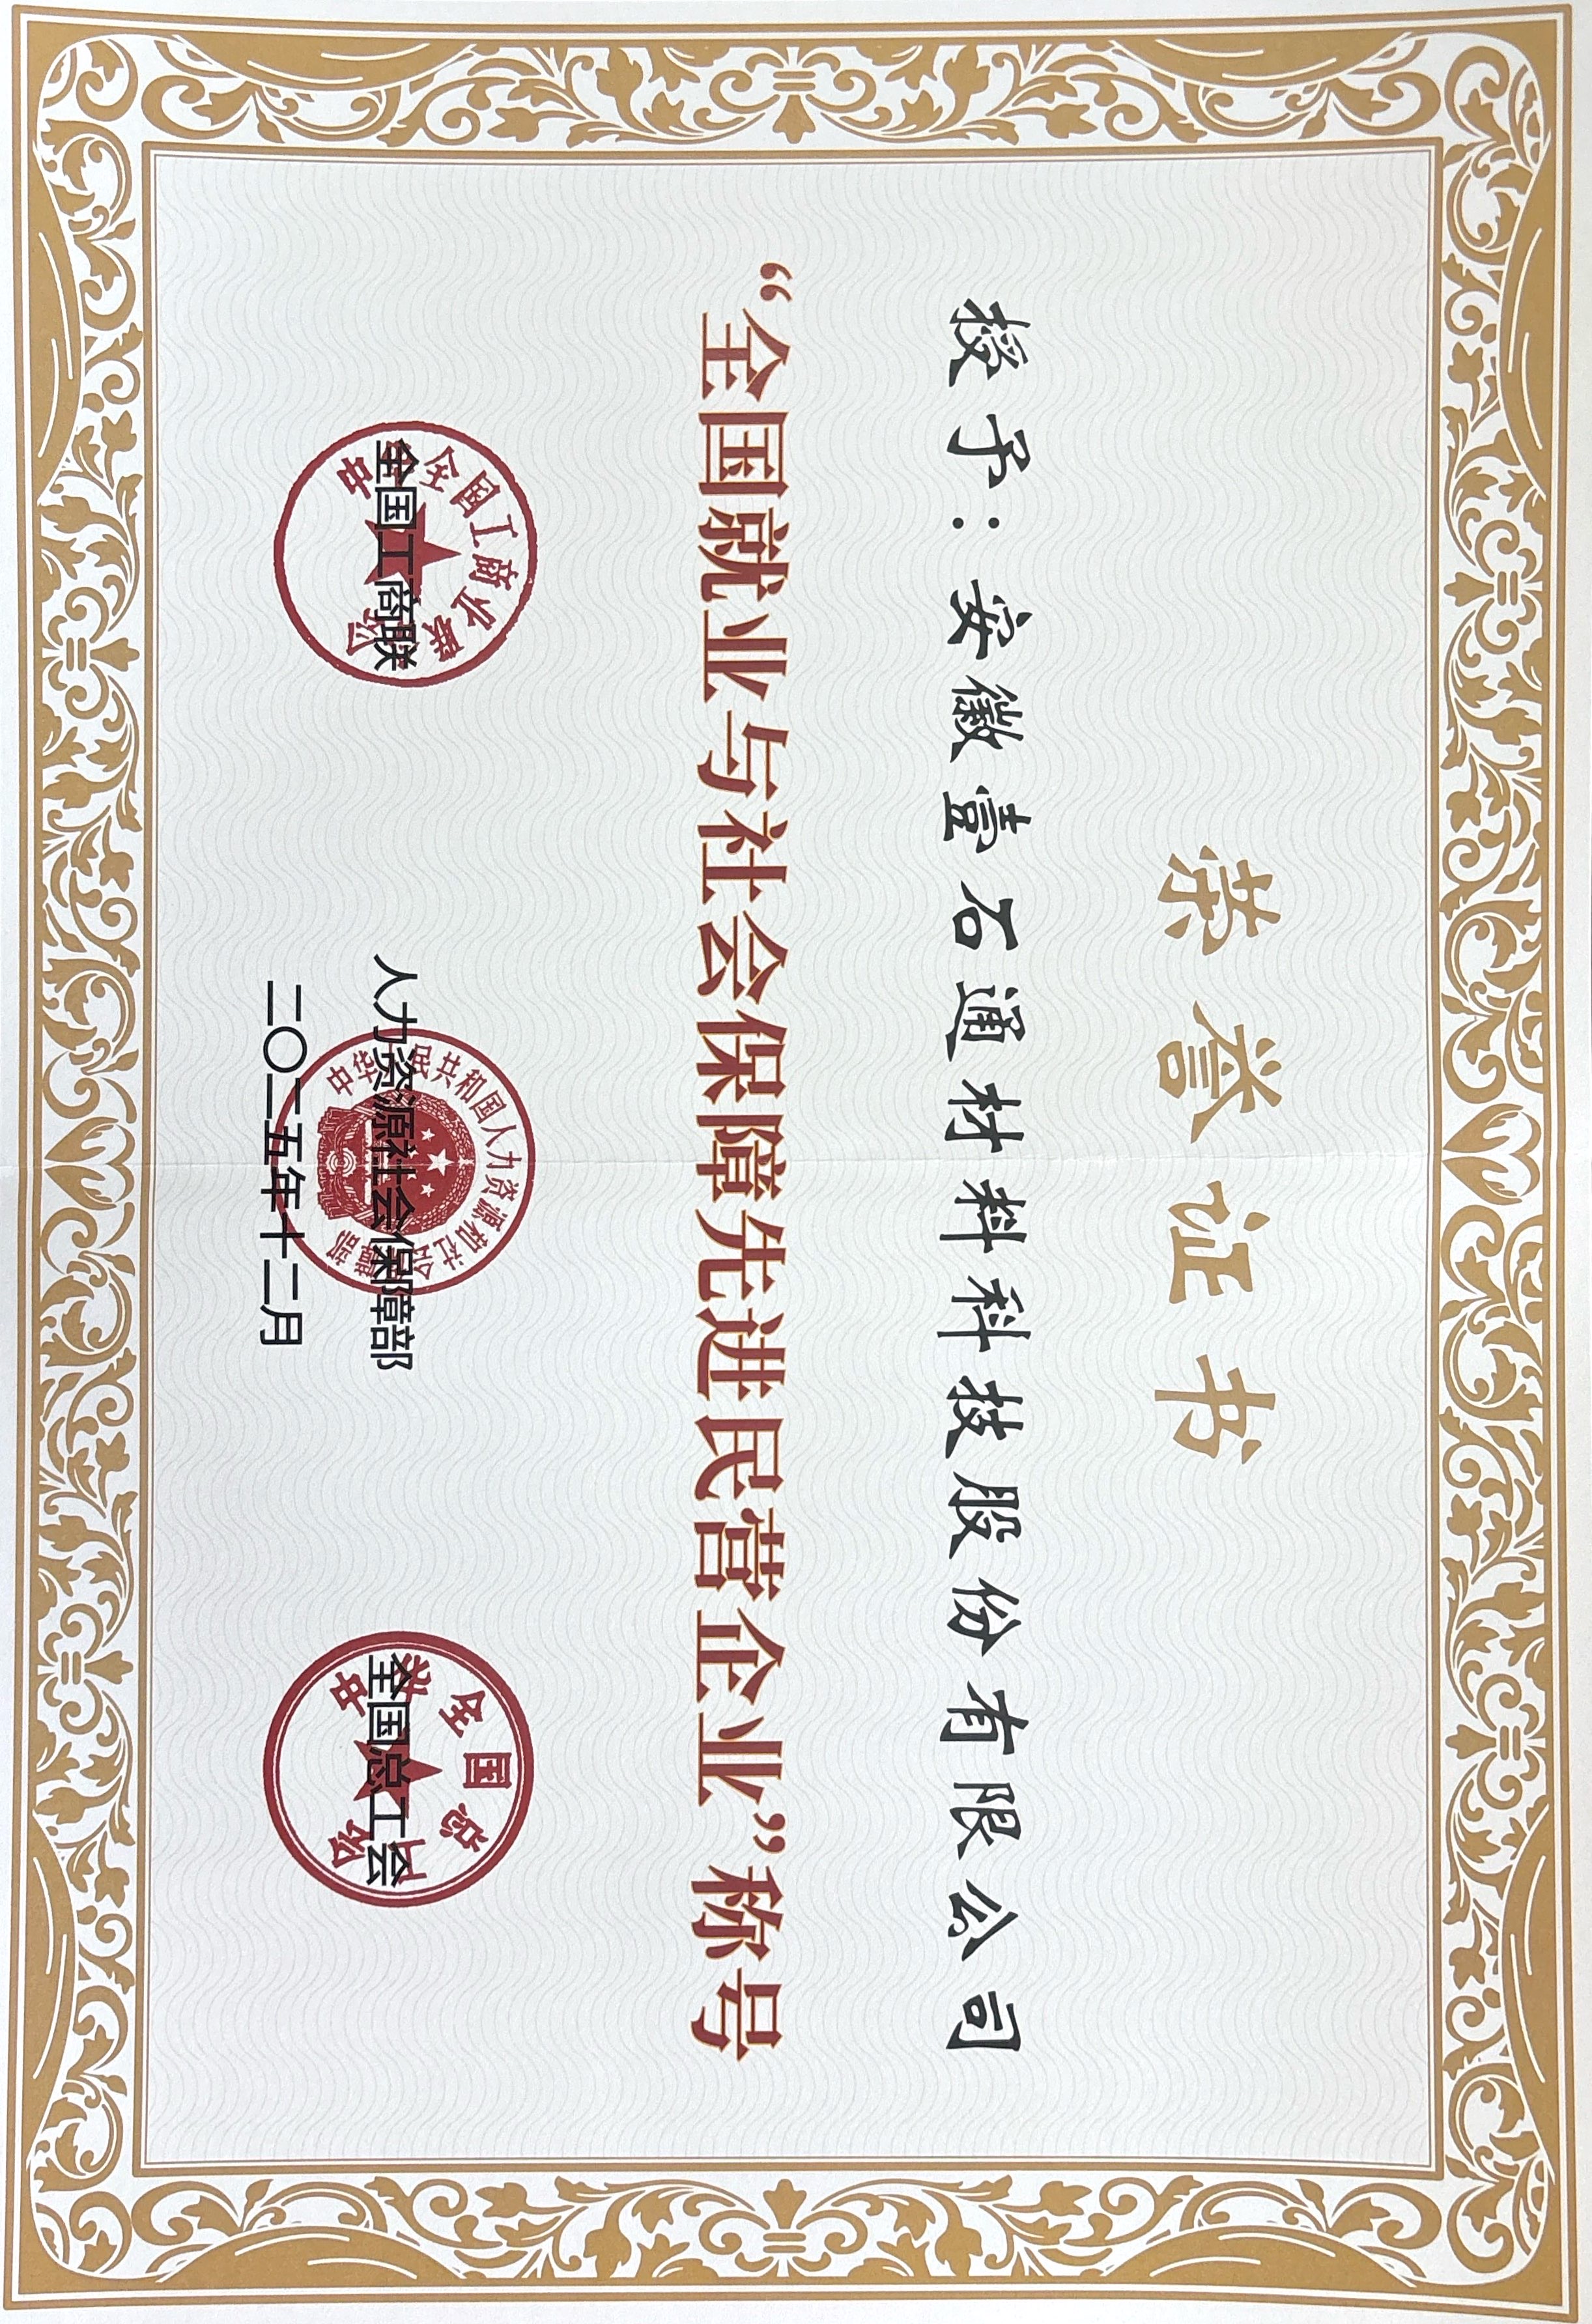 荣誉证书
授予：安徽壹石通材料科技股份有限公司
“全国就业与社会保障先进民营企业”称号
全国工商联
人力资源社会保障部
全国总工会
二〇二五年十二月
中华全国工商业联合会
中华人民共和国人力资源和社会保障部
中华全国总工会